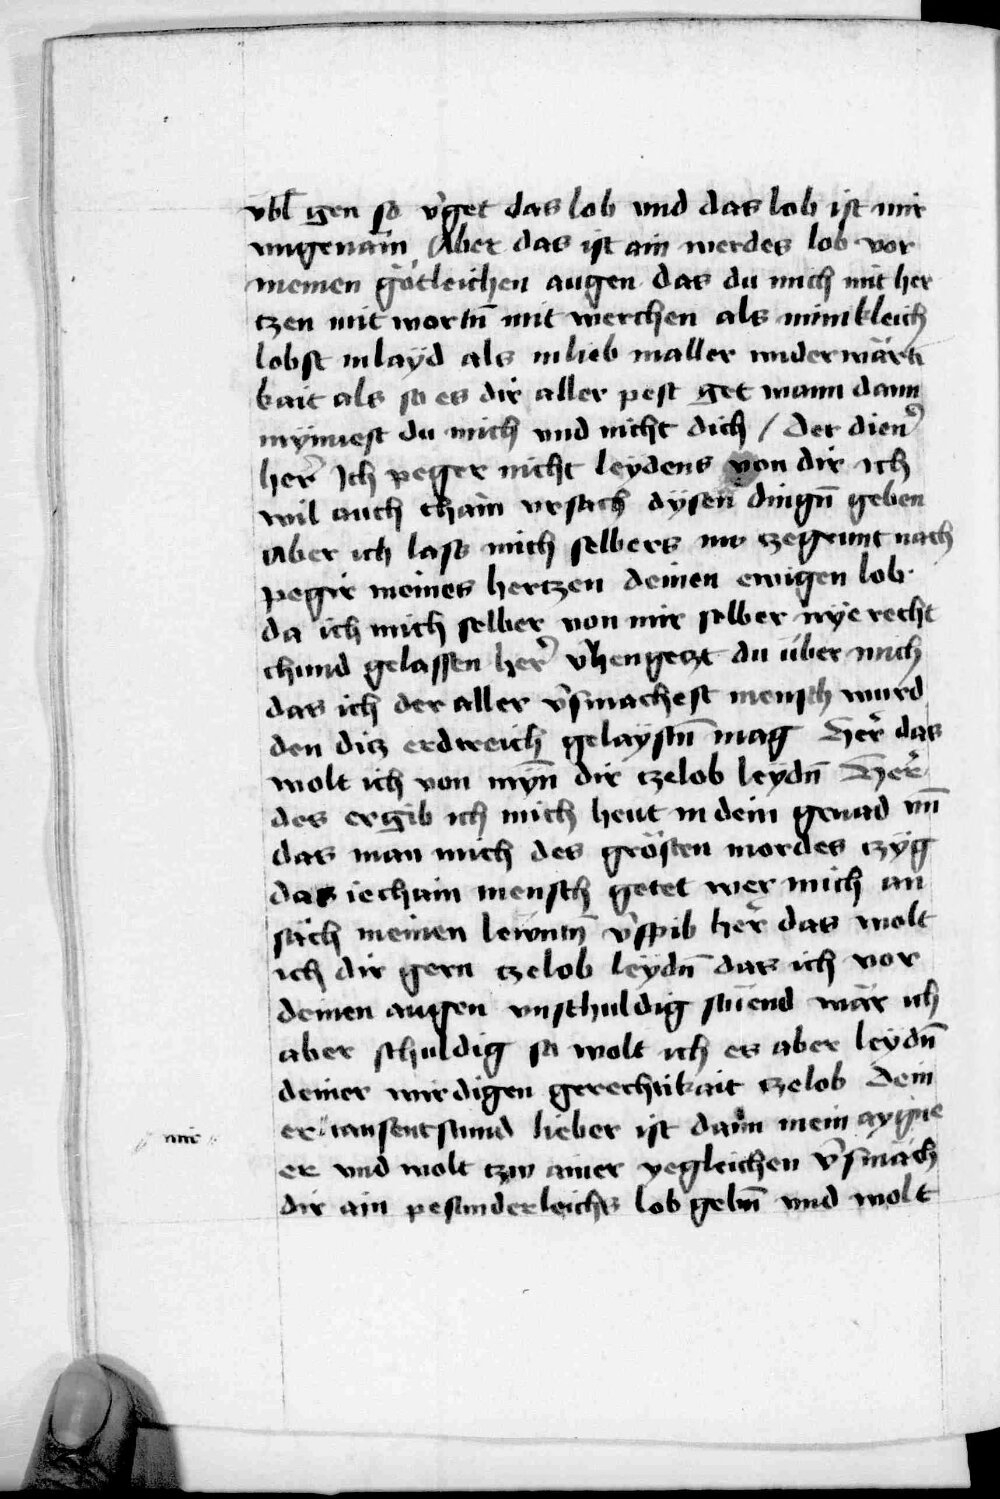 vbl gen so v̉get das lob vnd das lob ist mir
vngenam Aber das ist ain werdes lob vor
meinen götleichen augen das du mich mit her
tzen mit wortn̄ mit werchen als minikleich
lobst in layd als in lieb in aller widerwärti
kait als so es dir aller pest get wann dann
mynnest du mich vnd nicht dich / Der dien̉
her̉ Ich peger nicht leydens von dir ich
wil auch chain vrsach dysen dingn̄ geben
Aber ich lass mich selbers nw tzegrunt nach
pegir meines hertzen deinen ewigen lob
da ich mich selber von mir selber nye recht
chund gelassen her̉ v̉hengetzt du über mich
das ich der aller v̉smachest mensch wurd
den ditz erdtreich gelaystn̄ mag Her̉ das
wolt ich von mȳn dir tzelob leydn̄ Her̉
des ergib ich mich heut in dein genad vn̄
das man mich des grösten mordes tzyg
das iechain mensch getet wer mich an
säch meinen lewntn̄ v̉spib her̉ das wolt
ich dir gern tzelob leydn̄ das ich vor
deinen augen vnschuldig stüend wär ich
aber schuldig so wolt ich es aber leydn̄
deiner wirdigen gerechtikait tzelob Dein
er tausentstund lieber ist dann mein aygne
mir
er vnd wolt tzw ainer yegleichen v̉smäch
dir ain pesunderleichs lob gebn̄ vnd wolt